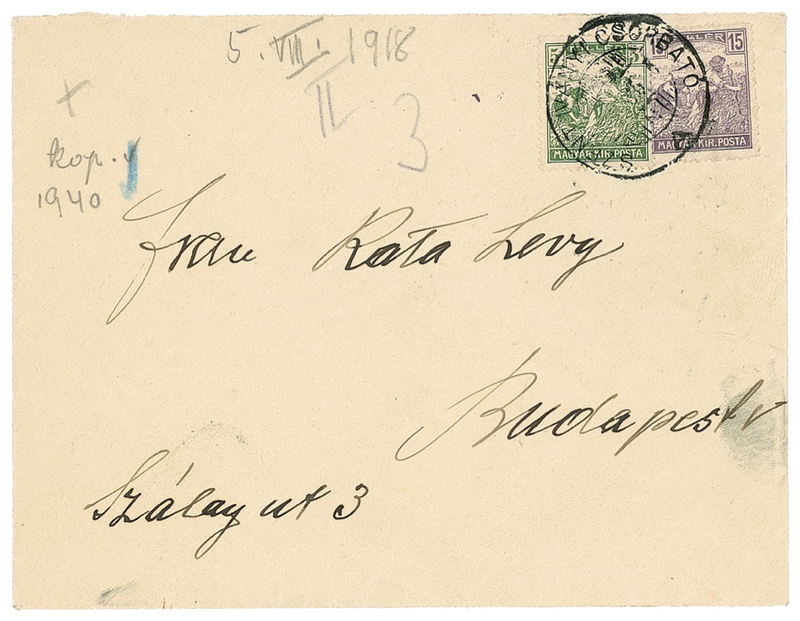 5. VIII. 1918
II
3
+
kop. v
1940
5 FILLÉR 5
15 FILLÉR 15
SZENTIVÁNYI CSORBATÓ
MAGYAR KIR. POSTA
MAGYAR KIR. POSTA
Frau Kata Levy
Budapest V
Szálay ut 3